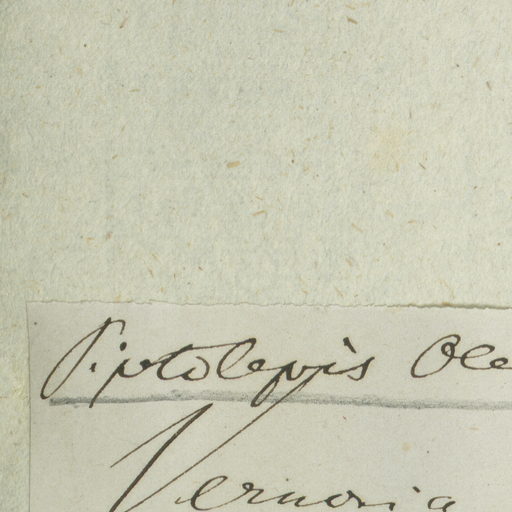 Piptolepis Ole
Vernonia